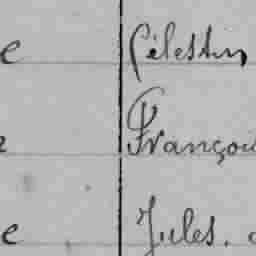 e Célestin
e François
e Jules.